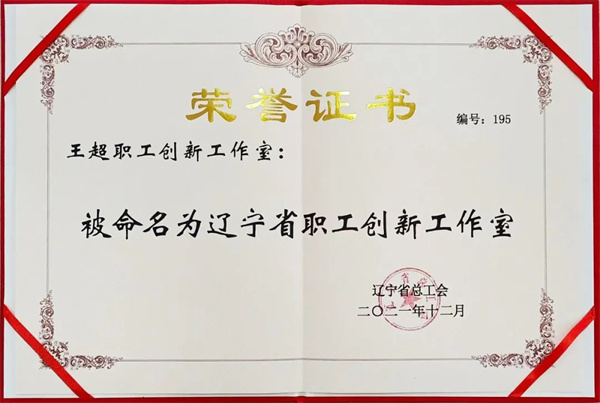 荣誉证书
编号：195
王超职工创新工作室：
被命名为辽宁省职工创新工作室
辽宁省总工会
二〇二一年十二月